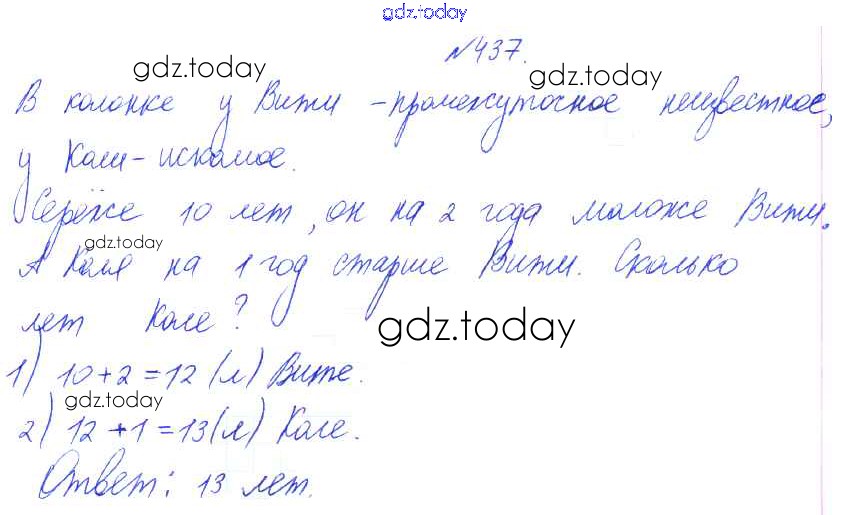 gdz.today
№437.
gdz.today
gdz.today
В колонке у Вити - промежуточное неизвестное,
у Коли - искомое.
Серёже 10 лет, он на 2 года моложе Вити.
gdz.today
А Коля на 1 год старше Вити. Сколько
лет Коле?
gdz.today
1) 10+2=12 (л) Вите.
gdz.today
2) 12+1=13(л) Коле.
Ответ: 13 лет.